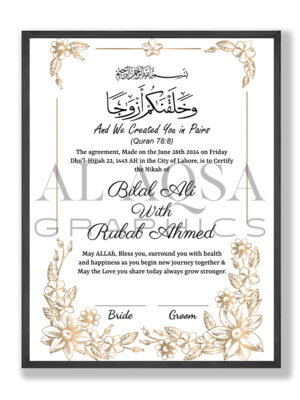 بسم الله الرحمن الرحيم
وَخَلَقْنَاكُمْ أَزْوَاجًا
And We Created You in Pairs
(Quran 78:8)
The agreement, Made on the June 28th 2024 on Friday
Dhu'l-Hijjah 22, 1445 AH in the City of Lahore, is to Certify
the Nikah of
ALAQSA
GRAPHICS
Bilal Ali
With
Rabab Ahmed
May ALLAh, Bless you, surround you with health
and happiness as you begin new journey together &
May the Love you share today always grow stronger.
Bride
Groom